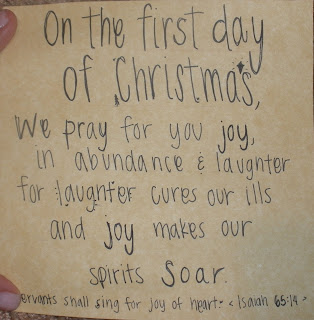 On the first day
of Christmas,
We pray for you joy,
in abundance & laughter
for laughter cures our ills
and joy makes our
spirits soar.
ervants shall sing for joy of heart - < Isaiah 65:14 >